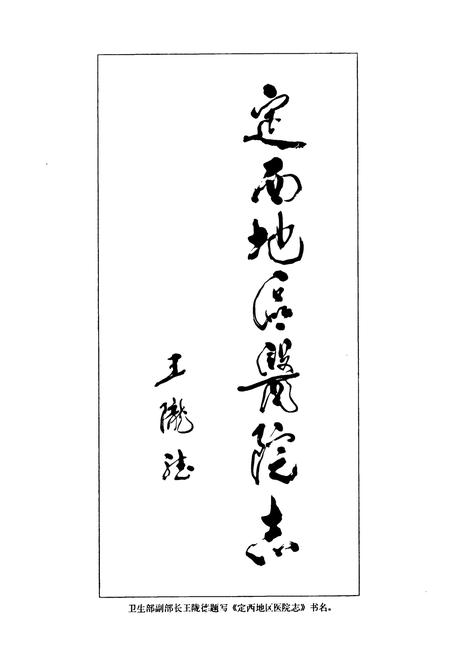 定西地區醫院志
王隴德
卫生部副部长王陇德题写《定西地区医院志》书名。